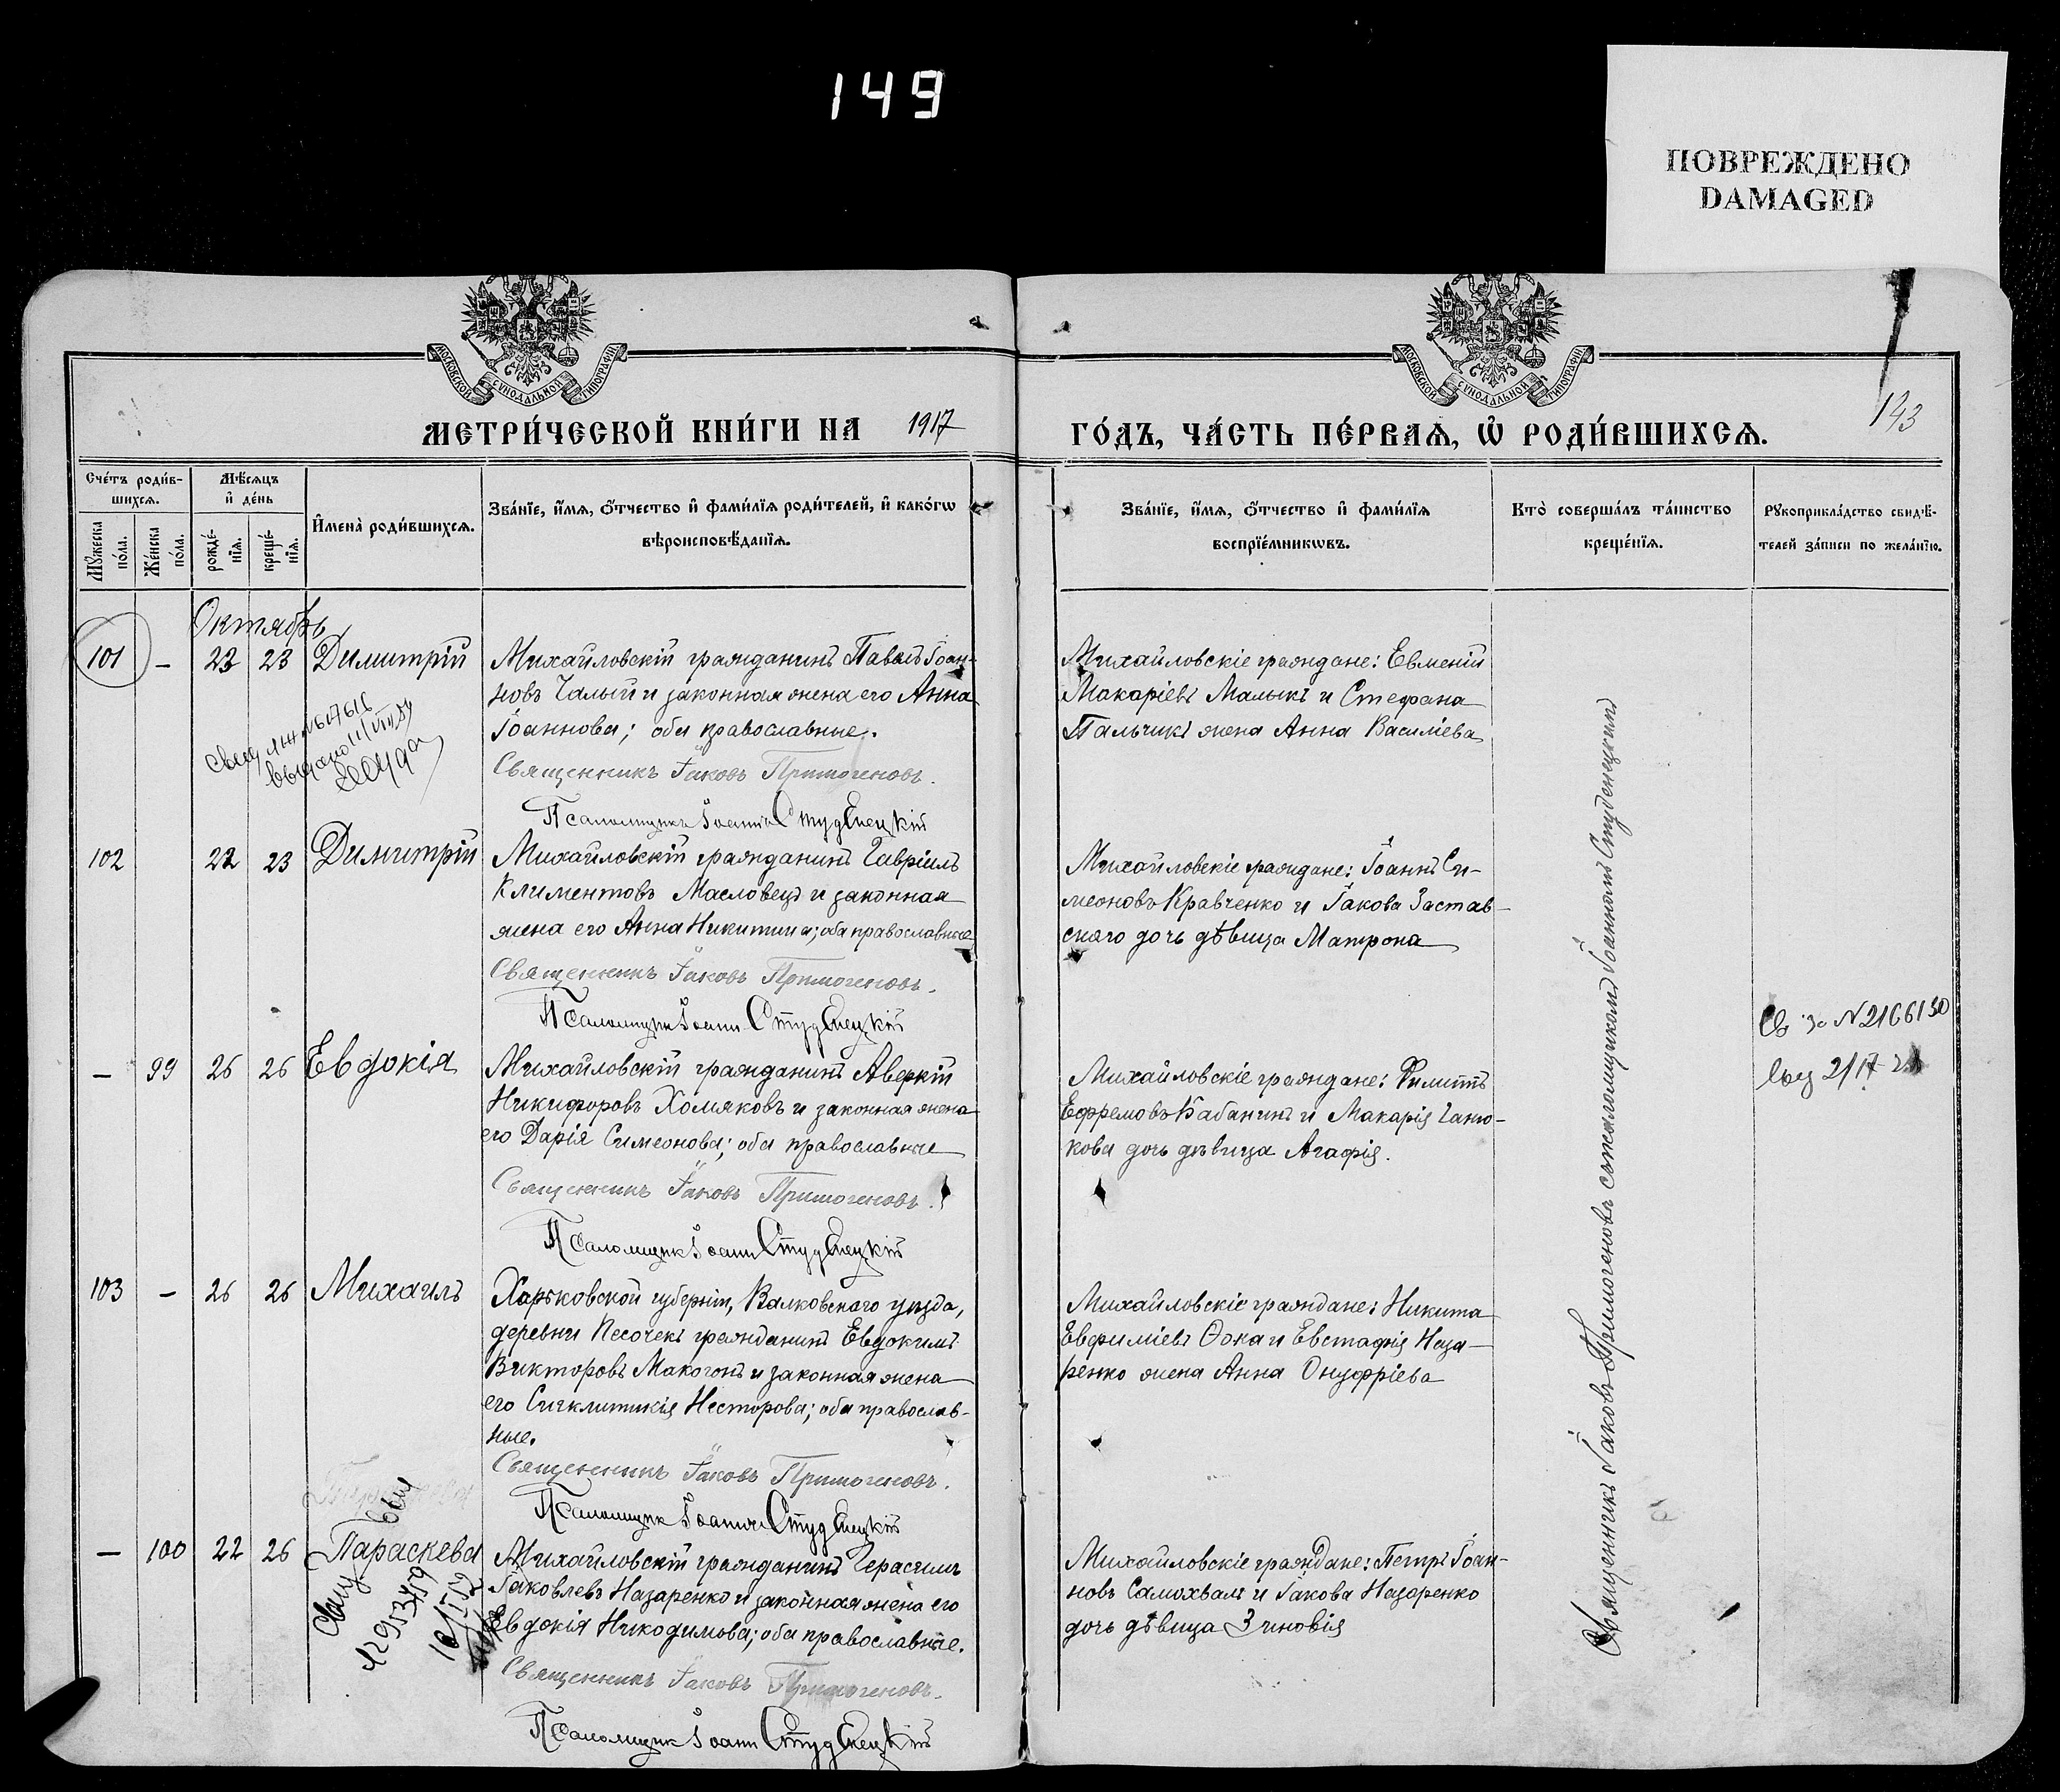 149
ПОВРЕЖДЕНО
DAMAGED
МОСКОВСКОЙ СУНОДАЛЬНОЙ ТИПОГРАФІИ
МОСКОВСКОЙ СУНОДАЛЬНОЙ ТИПОГРАФІИ
МЕТРИ́ЧЕСКОЙ КНИ́ГИ НА 1917
ГО́ДЪ, ЧА́СТЬ ПЕ́РВАѦ, Ѡ҆ РОДИ́ВШИХСѦ.
143
Сче́тъ роди́в-
шихсѧ.
Мѣ́сѧцъ
и҆ де́нь
Мꙋ́жеска
по́ла.
Же́нска
по́ла.
рожде́-
нїѧ.
креще́-
нїѧ.
И҆мена̀ роди́вшихсѧ.
Зва́нїе, и҆́мѧ, ѻ҆́тчество и҆ фами́лїѧ роди́телей, и҆ како́гѡ
вѣроисповѣ́данїѧ.
Зва́нїе, и҆́мѧ, ѻ҆́тчество и҆ фами́лїѧ
воспрїе́мникѡвъ.
Кто̀ соверша́лъ та́инство
креще́нїѧ.
Рꙋкоприкла́дство свидѣ́-
телей за́писи по жела́нїю.
Октябрь
101 – 23 23 Димитрій
Михайловскій гражданинъ Павелъ Іоан-
новъ Чалый и законная жена его Анна
Іоаннова; оба православные.
Священникъ Іаковъ Примогеновъ.
Псаломщикъ Іоаннъ Студенецкій
Михайловскіе граждане: Евменій
Макаріевъ Малыкъ и Стефана
Пальчикъ жена Анна Василіева
102 22 23 Димитрій
Михайловскій гражданинъ Гавріилъ
Климентовъ Масловецъ и законная
жена его Анна Никитина; оба православные
Священникъ Іаковъ Примогеновъ.
Псаломщикъ Іоаннъ Студенецкій
Михайловскіе граждане: Іоаннъ Си-
меоновъ Кравченко и Іакова Застав-
скаго дочь дѣвица Матрона
– 99 26 26 Евдокія
Михайловскій гражданинъ Аверкій
Никифоровъ Хомяковъ и законная жена
его Дарія Симеонова; оба православные
Священникъ Іаковъ Примогеновъ.
Псаломщикъ Іоаннъ Студенецкій
Михайловскіе граждане: Филиппъ
Ефремовъ Кабанинъ и Макарія Ганю-
кова дочь дѣвица Агафія.
103 – 26 26 Михаилъ
Харьковской губерніи, Валковскаго уѣзда,
деревни Песочекъ гражданинъ Евдокимъ
Викторовъ Макогонъ и законная жена
его Сигклитикія Несторова; оба православ-
ные.
Священникъ Іаковъ Примогеновъ.
Псаломщикъ Іоаннъ Студенецкій
Михайловскіе граждане: Никита
Евфиміевъ Фока и Евстафія Наза-
ренко жена Анна Онуфріева
– 100 22 26 Параскева
Михайловскій гражданинъ Герасимъ
Іаковлевъ Назаренко и законная жена его
Евдокія Никодимова; оба православные.
Священникъ Іаковъ Примогеновъ.
Псаломщикъ Іоаннъ Студенецкій
Михайловскіе граждане: Петръ Іоан-
новъ Самохвалъ и Іакова Назаренко
дочь дѣвица Зиновія
Священникъ Іаковъ Примогеновъ съ псаломщикомъ Іоанномъ Студенецкимъ